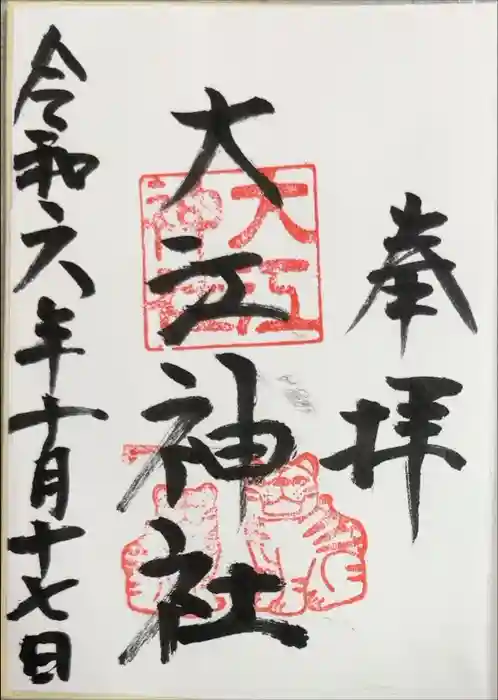 奉拝
大江神社
大江神社
令和六年十月十七日